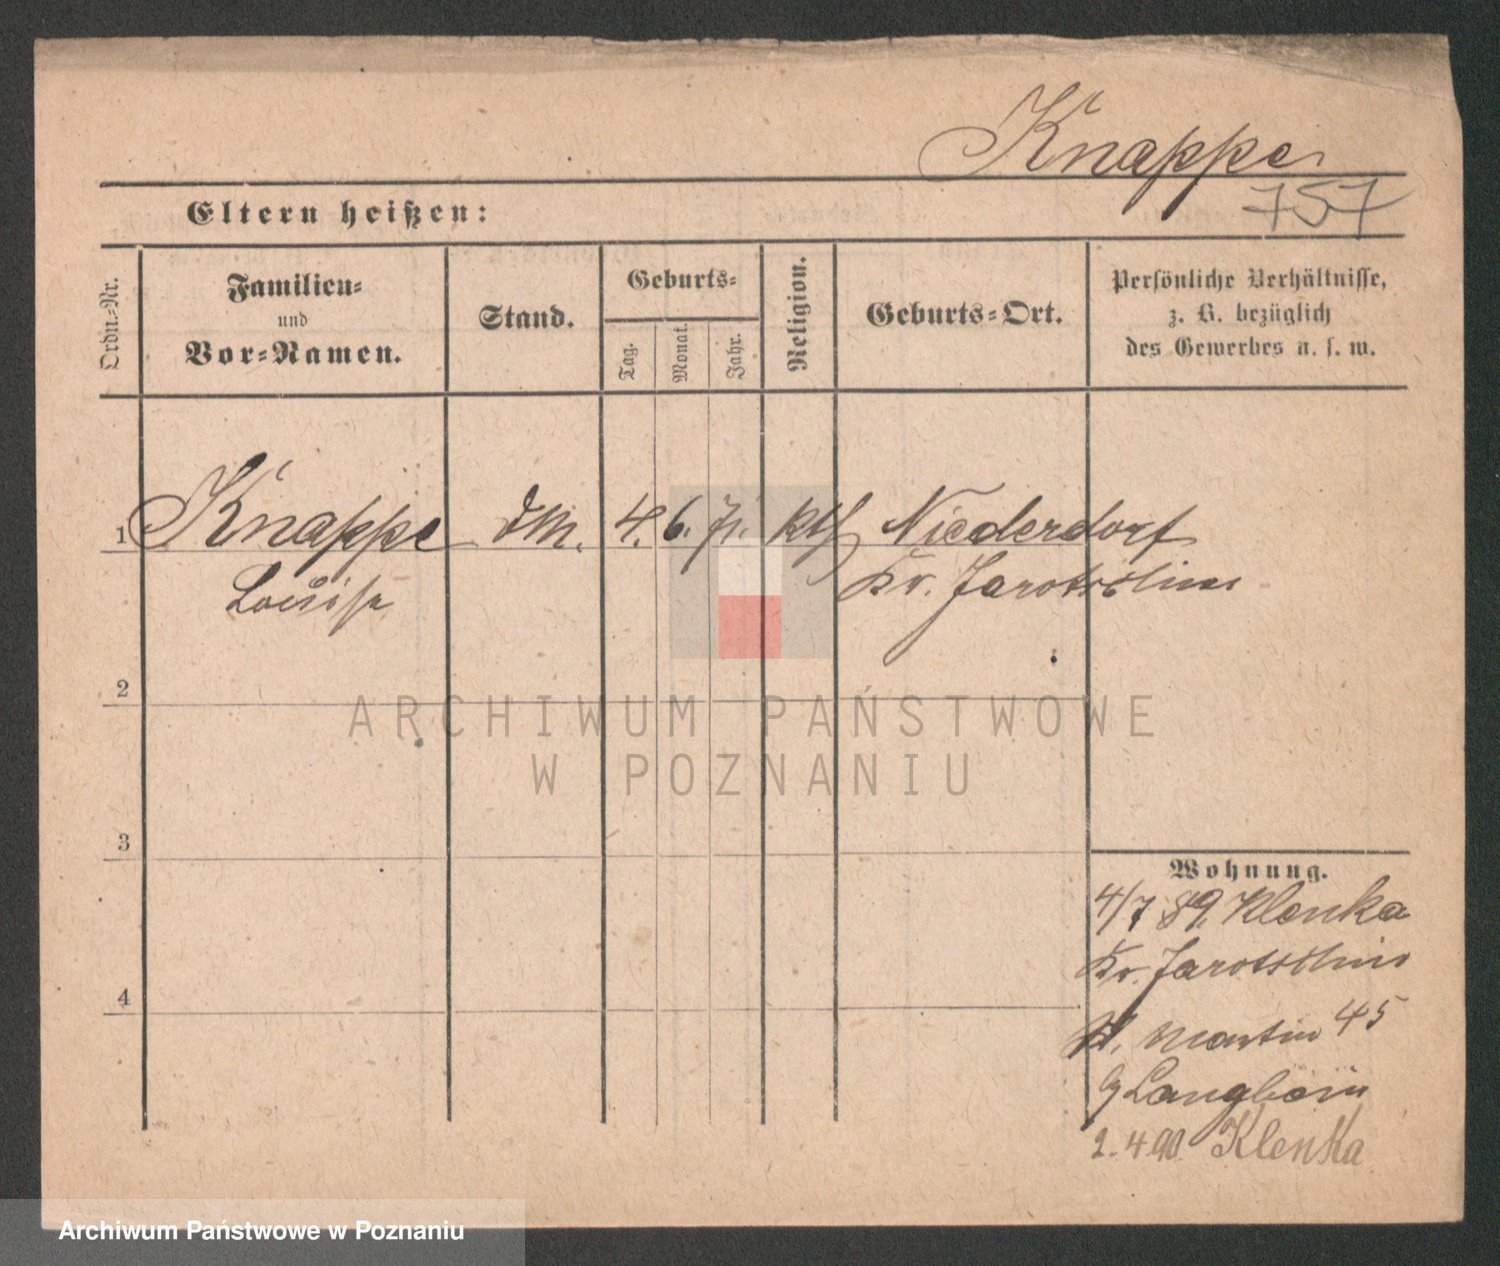 Knappe
757
Eltern heißen:
Ordn.-Nr.
Familien-
und
Vor-Namen.
Stand.
Geburts-
Tag.
Monat.
Jahr.
Religion.
Geburts-Ort.
Persönliche Verhältnisse,
z. B. bezüglich
des Gewerbes u. s. w.
1 Knappe 4. 6. 71. kth Niederdorf
Louise Kr. Jarotschin
2
3
4
Wohnung.
4/7 89. Klenka
Kr. Jarotschin
St. Martin 45
Langhein
2. 4. 90. Klenka
ARCHIWUM PAŃSTWOWE
W POZNANIU
Archiwum Państwowe w Poznaniu